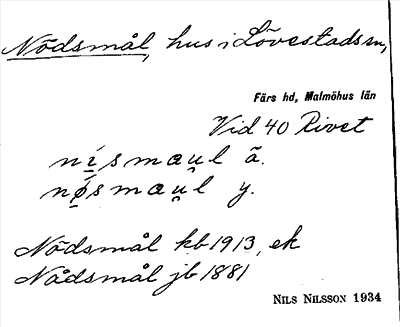 Nödsmål, hus i Lövestads sn,
Färs hd, Malmöhus län
Vid 40 Rivet
nísmaul ä.
nǿsmaul y.
Nödsmål kb 1913, ek
Nådsmål jb 1881
NILS NILSSON 1934